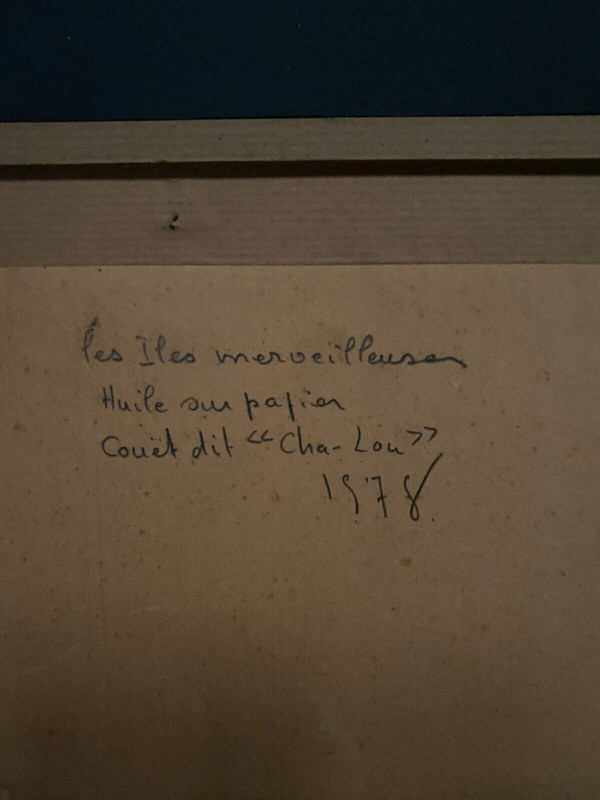 les Iles merveilleuses
Huile sur papier
Couët dit « Cha-Lou »
1978